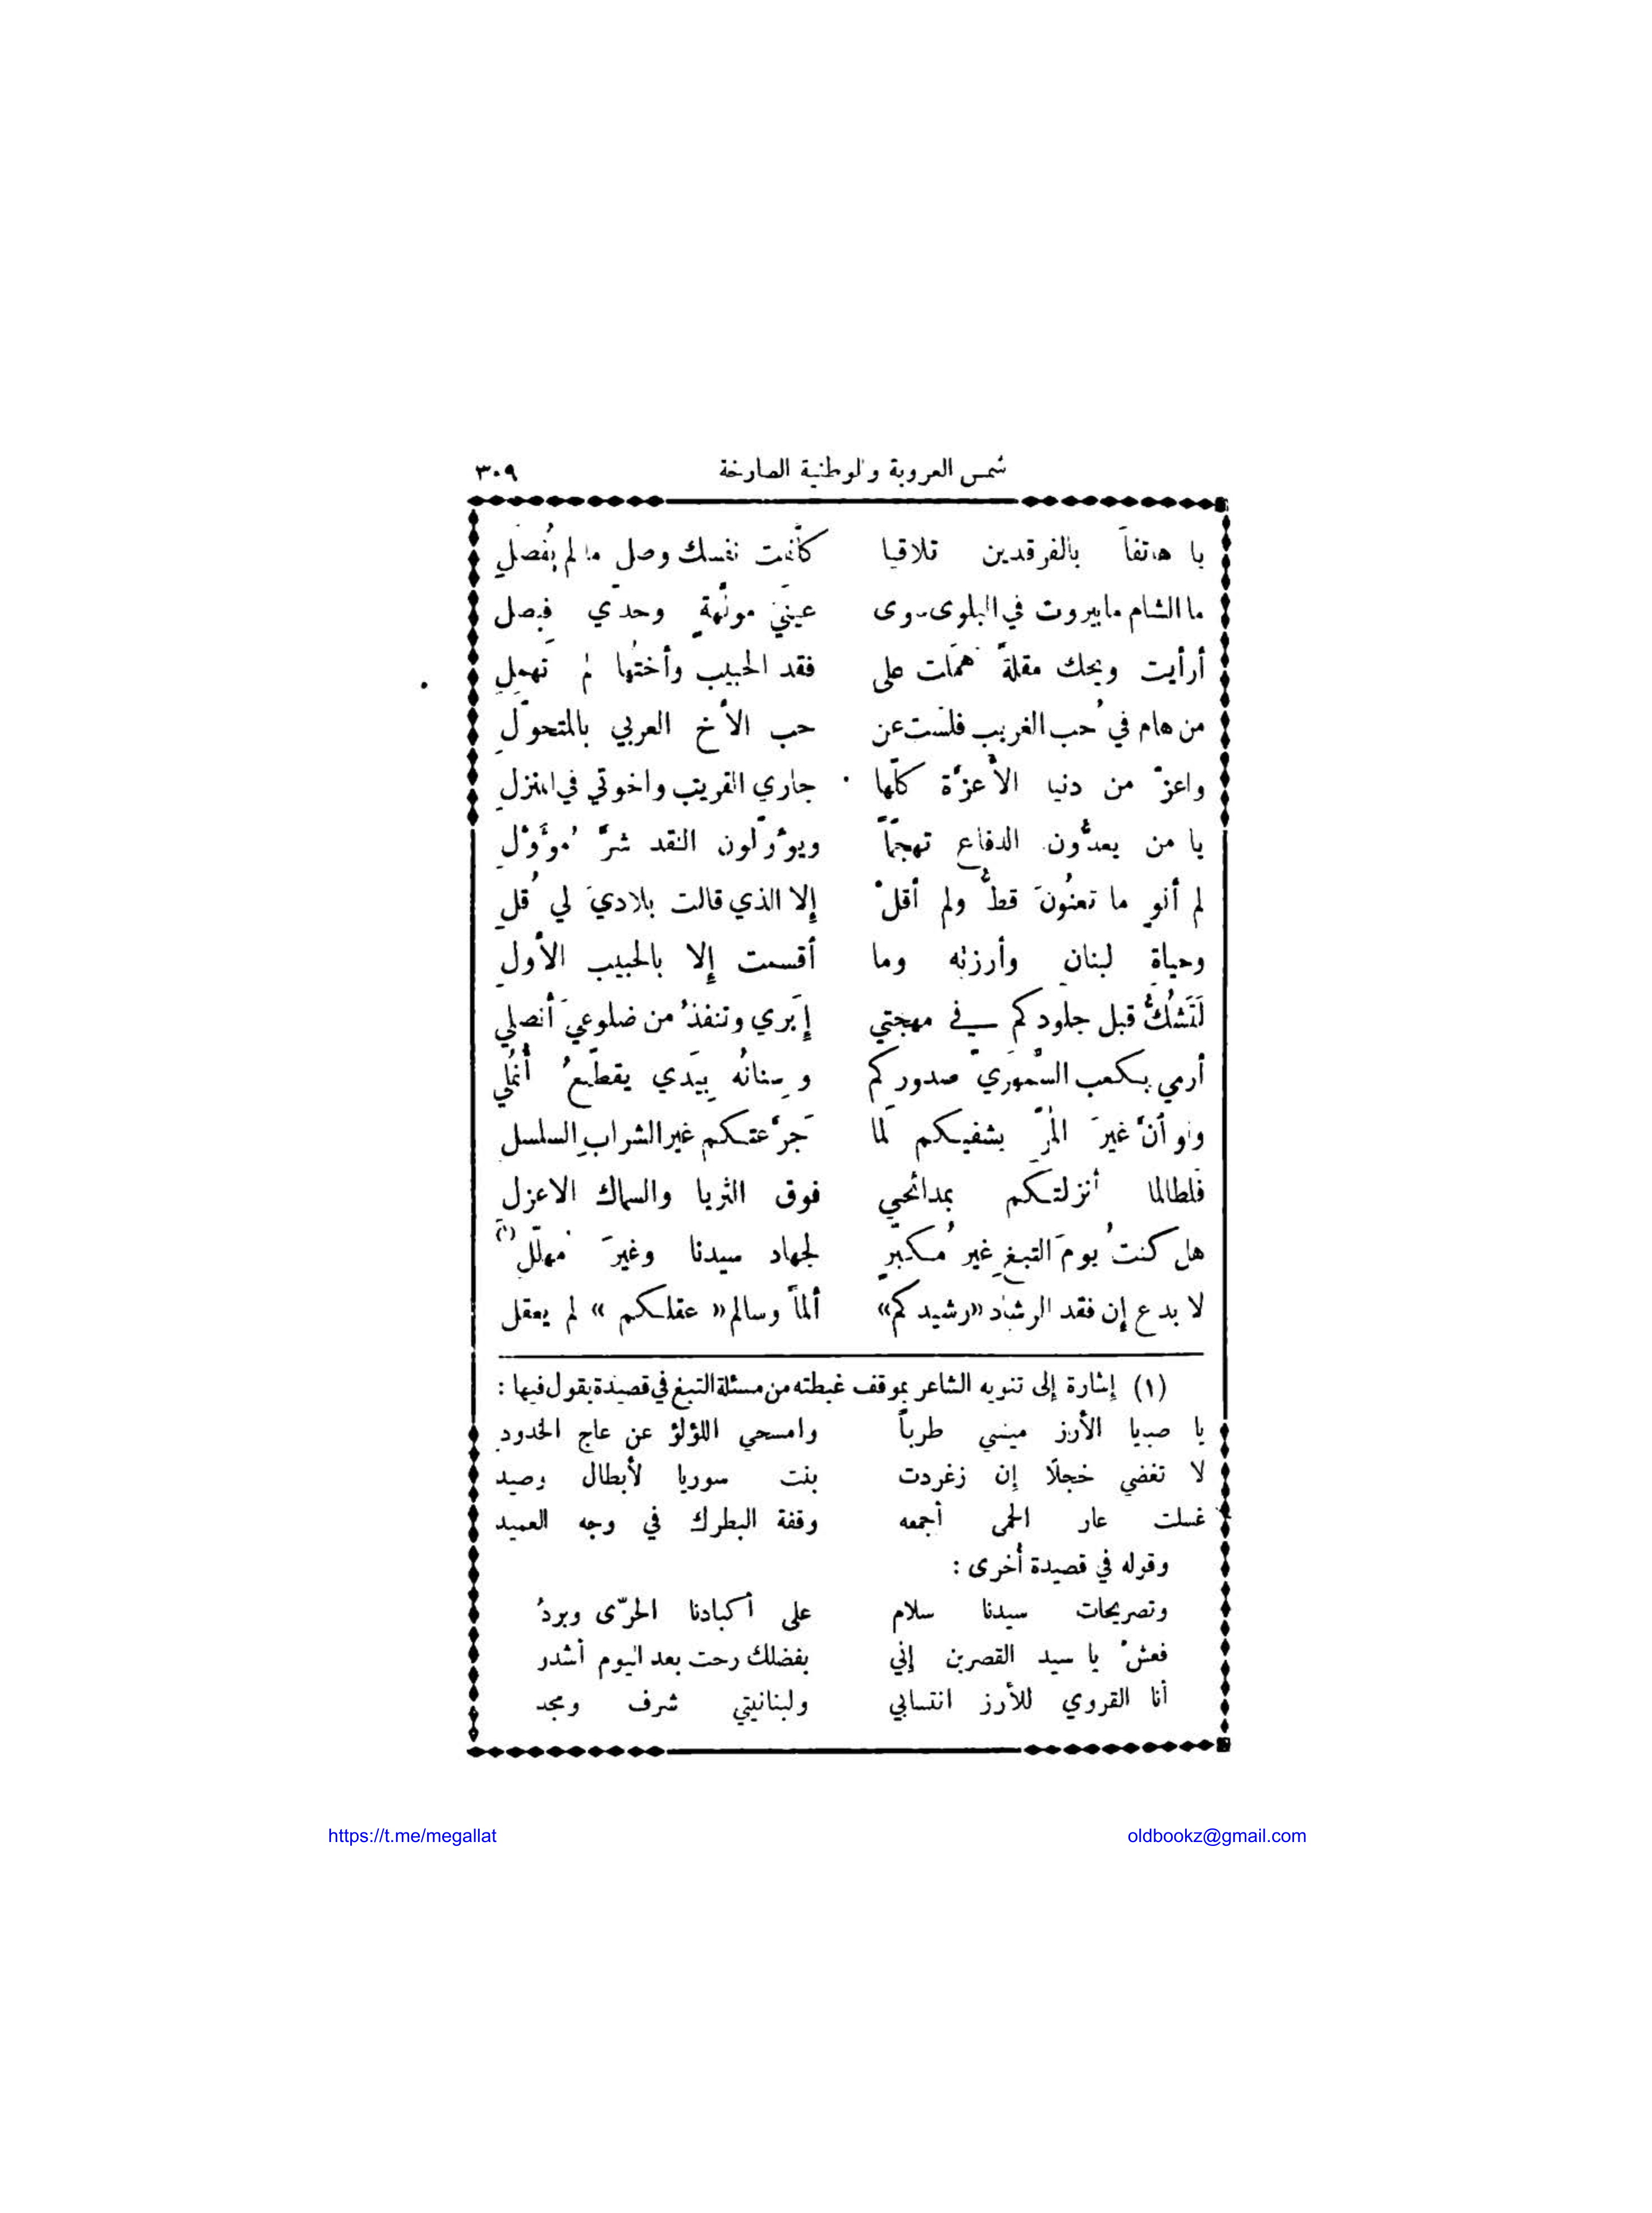 شمس العروبة والوطنية الصارخة ٣٠٩
يا هاتفاً بالفرقدين تلاقيا كلّفت نفسك وصل ما لم يُفصَلِ
ما الشام ما بيروت في البلوى سوى عينَيْ مولّهةٍ وحدّي فيصل
أرأيت ويحك مقلةً همَلت على فقد الحبيب وأختُها لم تَهمِلِ
من هام في حب الغريب فلست عن حب الأخ العربي بالمتحوّلِ
واعزّ من دنيا الأعزّة كلّها جاري القريب واخوتي في المنزلِ
يا من يعدُّون الدفاع تهجّماً ويؤوّلون النقد شرَّ مُؤَوَّلِ
لم أنوِ ما تعنُونَ قطُّ ولم أقلْ إلا الذي قالت بلاديَ لي قُلِ
وحياةِ لبنانٍ وأرزته وما أقسمت إلا بالحبيب الأولِ
لَتَشُكُّ قبل جلودكم في مهجتي إبَري وتنفذُ من ضلوعيَ أنصلي
أرمي بكعب السَّمهَريّ صدوركم وسِنانُه بِيَدي يقطّعُ أَنمُلي
ولو أنَّ غيرَ المرِّ يشفيكم لَما جَرَّعتكم غير الشرابِ السلسل
فلطالما أنزلتكم بمدائحي فوق الثريا والسماك الاعزل
هل كنتُ يومَ التبغِ غير مُكبّرٍ لجهاد سيدنا وغيرَ مهلّلِ (١)
لا بدع إن فقد الرشاد «رشيدكم» ألماً وسالم «عقلكم» لم يعقل
(١) إشارة إلى تنويه الشاعر بموقف غبطته من مسئلة التبغ في قصيدة يقول فيها :
يا صبايا الأرز ميسي طرباً وامسحي اللؤلؤ عن عاج الخدود
لا تغضي خجلًا إن زغردت بنت سوريا لأبطال وصيد
غسلت عار الحمى أجمعه وقفة البطرك في وجه العميد
وقوله في قصيدة أخرى :
وتصريحات سيدنا سلام على أكبادنا الحرّى وبردُ
فعشْ يا سيد القصرين إني بفضلك رحت بعد اليوم أشدو
أنا القروي للأرز انتسابي ولبنانيتي شرف ومجد
https://t.me/megallat oldbookz@gmail.com